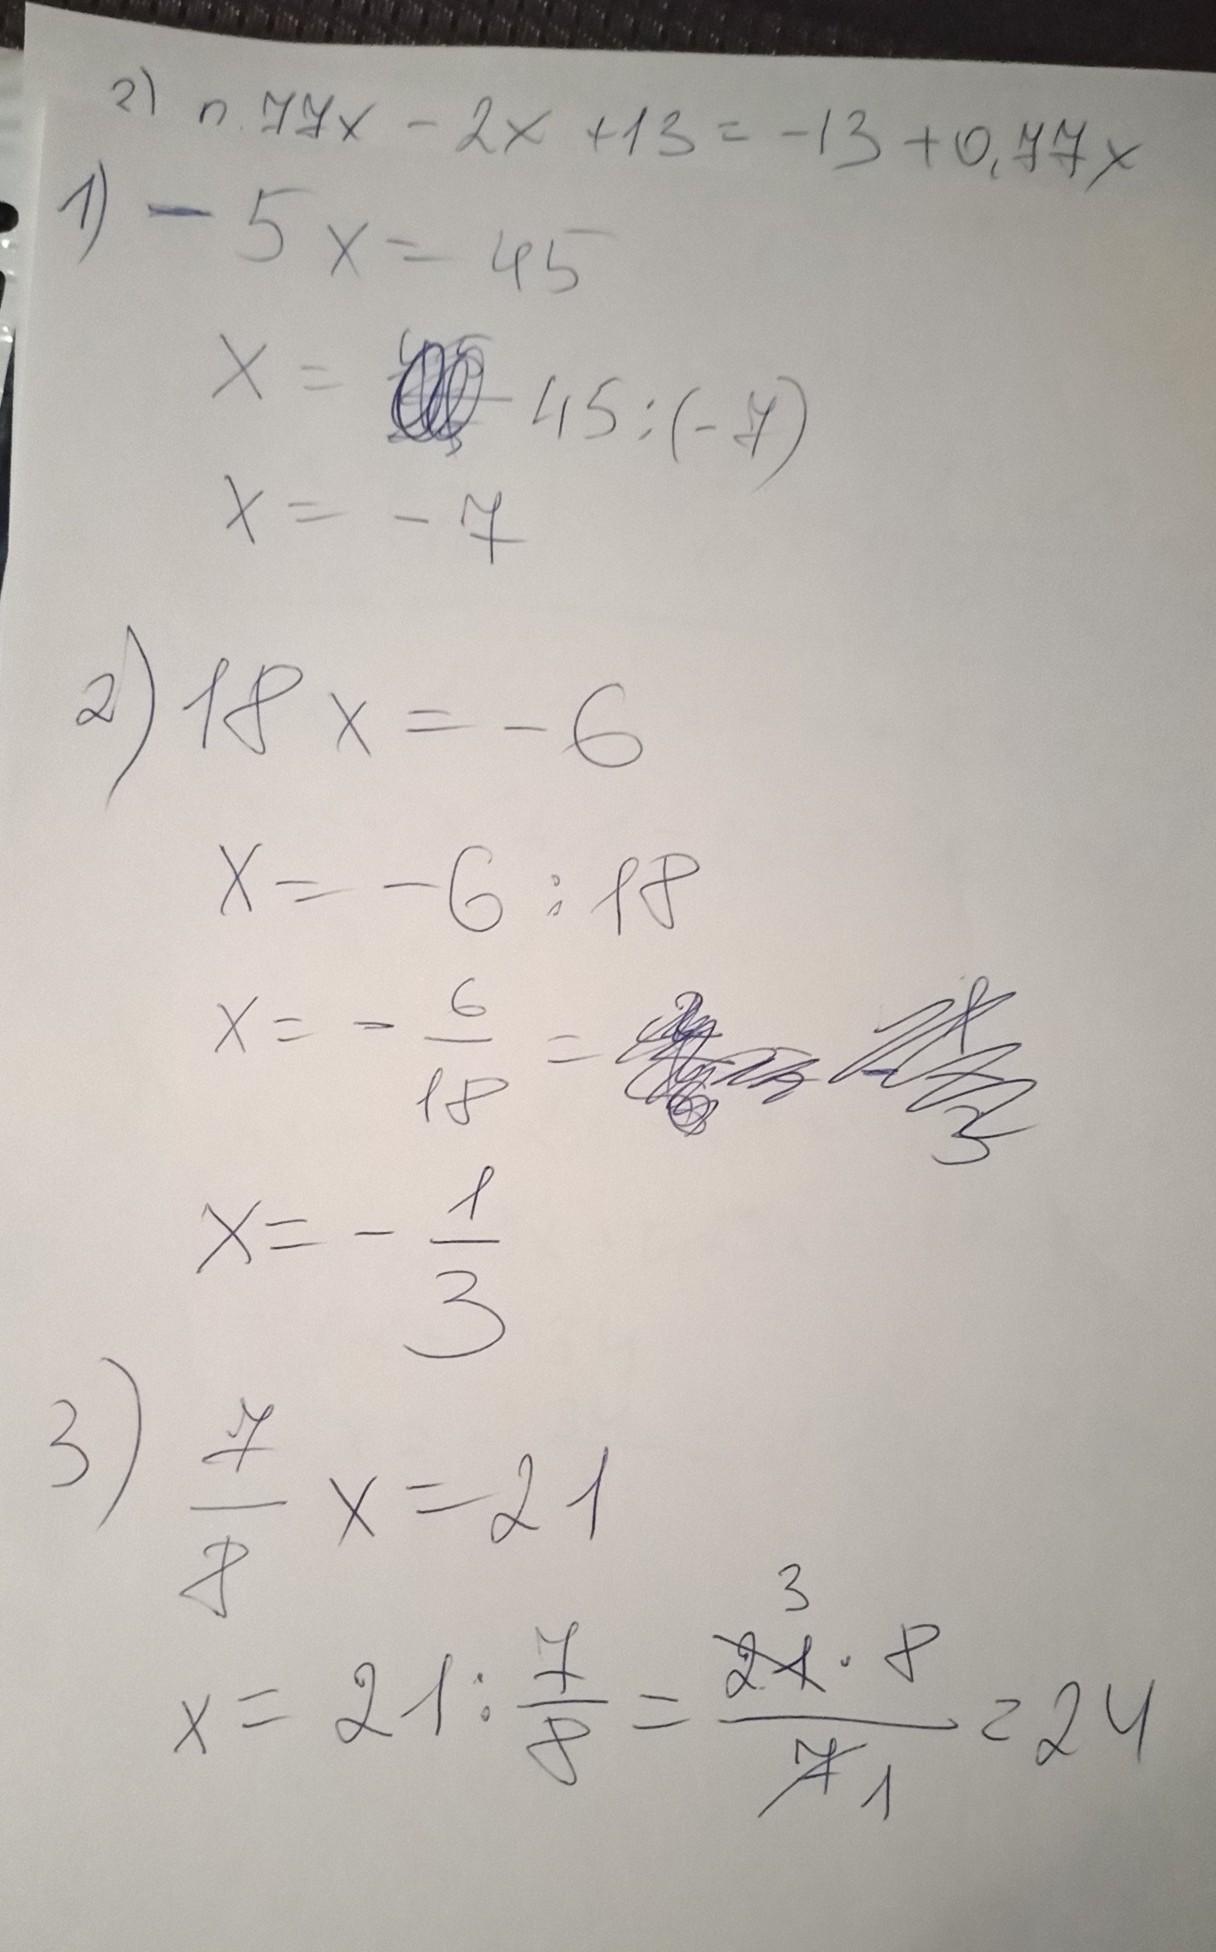 2) 0.77x - 2x + 13 = -13 + 0,77x
1) - 5x = 45
x = 45 : (-7)
x = - 7
2) 18x = - 6
x = - 6 : 18
x = - 6/18 =
x = - 1/3
3) 7/8 x = 21
3
x = 21 : 7/8 = 21 · 8 / 7 1 = 24